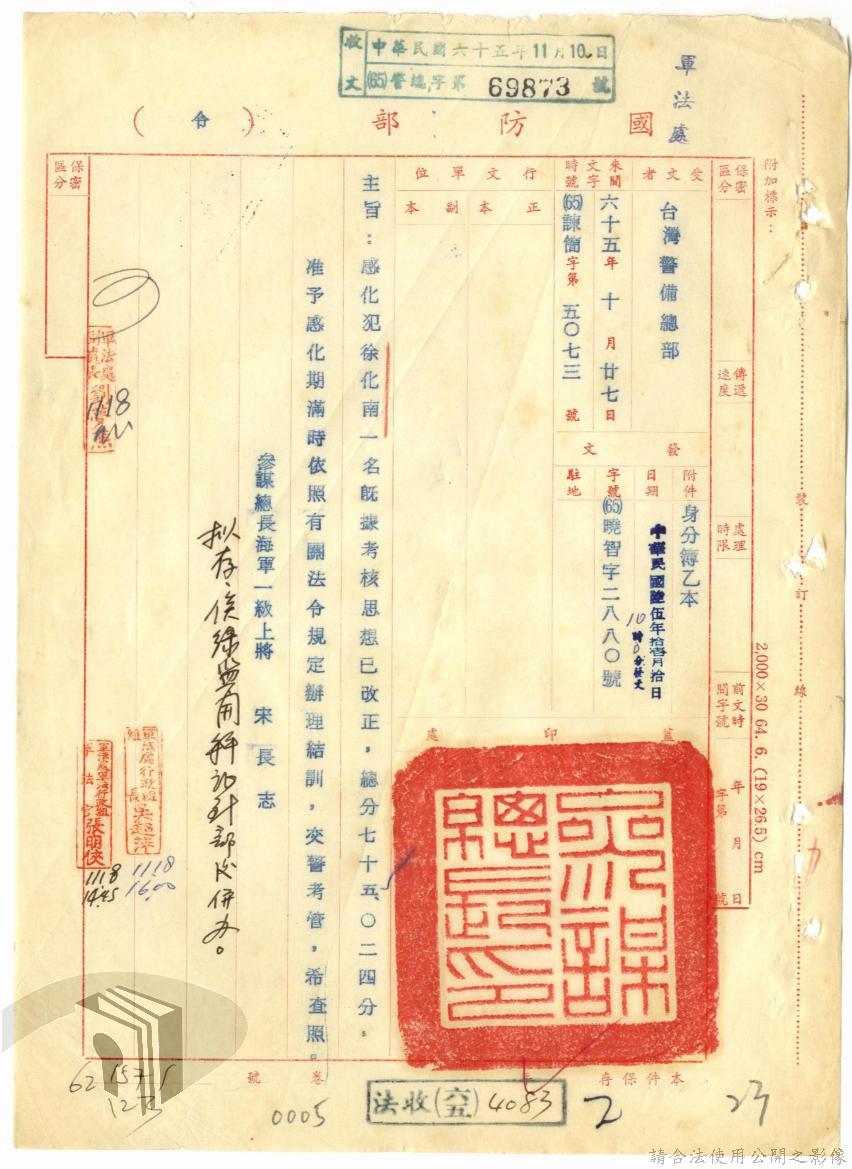 收文 中華民國六十五年11月10日
(65)警總字第 69873 號
軍法處
國防部（令）
附加標示：
保密區分
傳遞速度
處理時限
前文時間字號
年 月 日
字第 號
受文者
台灣警備總部
來文時間字號
六十五年十月廿七日
(65)諫簡字第五〇七三號
發文
附件
身分簿乙本
日期
中華民國陸伍年拾壹月拾日
10時0分發文
字號
(65)曉智字二八八〇號
駐地
行文單位
正本
副本
蓋印處
參謀總長印
主旨：感化犯徐化南一名既據考核思想已改正，總分七十五、〇二四分，
准予感化期滿時依照有關法令規定辦理結訓，交警考管，希查照。
參謀總長海軍一級上將 宋長志
保密區分
軍法處副處長
1118
軍法處行政組組長
1118
1600
軍法官張明俠
1118
1445
裝訂線
2,000×30 64. 6. (19×26.5) cm
本件保存
卷號
62 1571
1273
0005
法收(六五)4083
2
23
請合法使用公開之影像